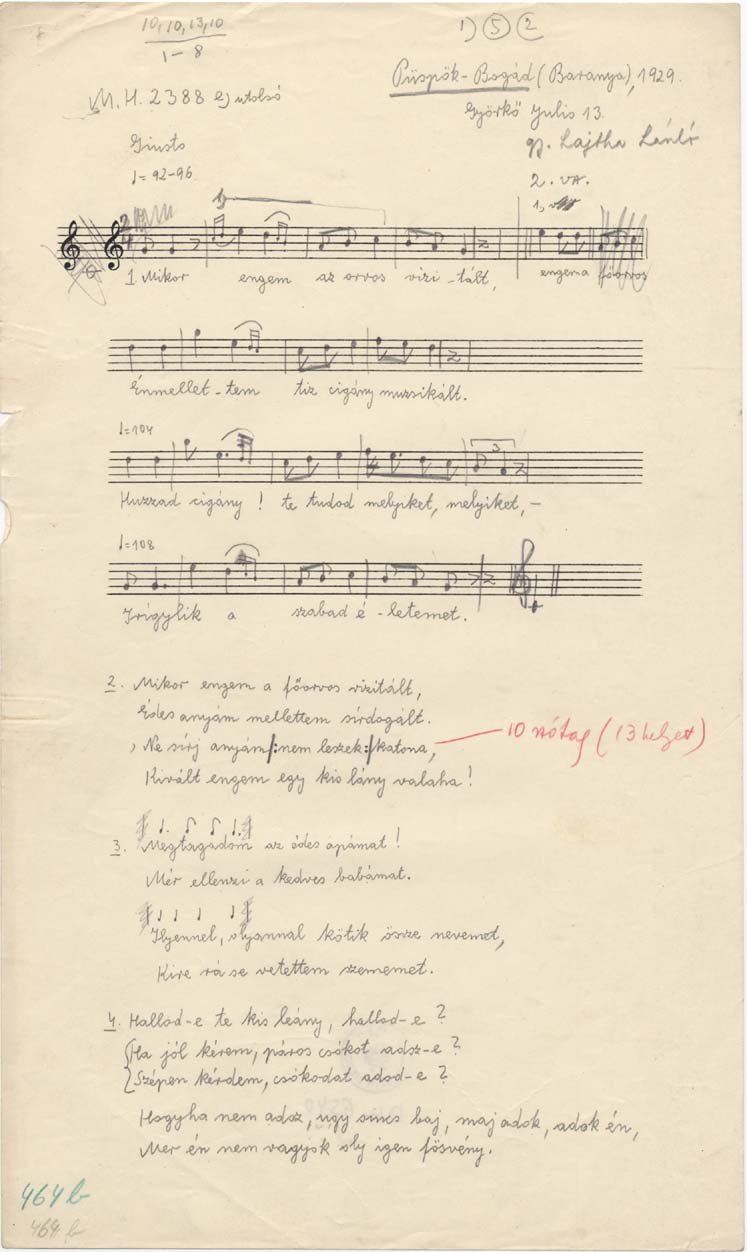 10, 10, 13, 10
1-8
1) 5 2
Püspök-Bogád (Baranya), 1929.
M. H. 2388 e) utolsó
Györkő Julis 13.
gy. Lajtha László
Giusto
♩= 92-96
2. va.
1)
1, va
2/4
1 Mikor engem az orvos vizi-tált, engem a főorvos
Énmellet-tem tiz cigány muzsikált.
♩=104
3
Huzzad cigány! te tudod melyiket, melyiket, –
♩=108
Irigylik a szabad é-letemet.
2. Mikor engem a főorvos vizitált,
Édes anyám mellettem sírdogált.
Ne sírj anyám /:nem leszek:/ katona, 10 szótag (13 helyett)
Kivált engem egy kis lány valaha!
3. Megtagadom az édes apámat!
Mér ellenzi a kedves babámat.
Ilyennel, olyannal kötik össze nevemet,
Kire rá se vetettem szememet.
4. Hallod-e te kis leány, hallod-e?
Ha jól kérem, páros csókot adsz-e?
Szépen kérdem, csókodat adod-e?
Hogyha nem adsz, ugy sincs baj, maj adok, adok én,
Mer én nem vagyok oly igen fösvény.
464 b
464 b